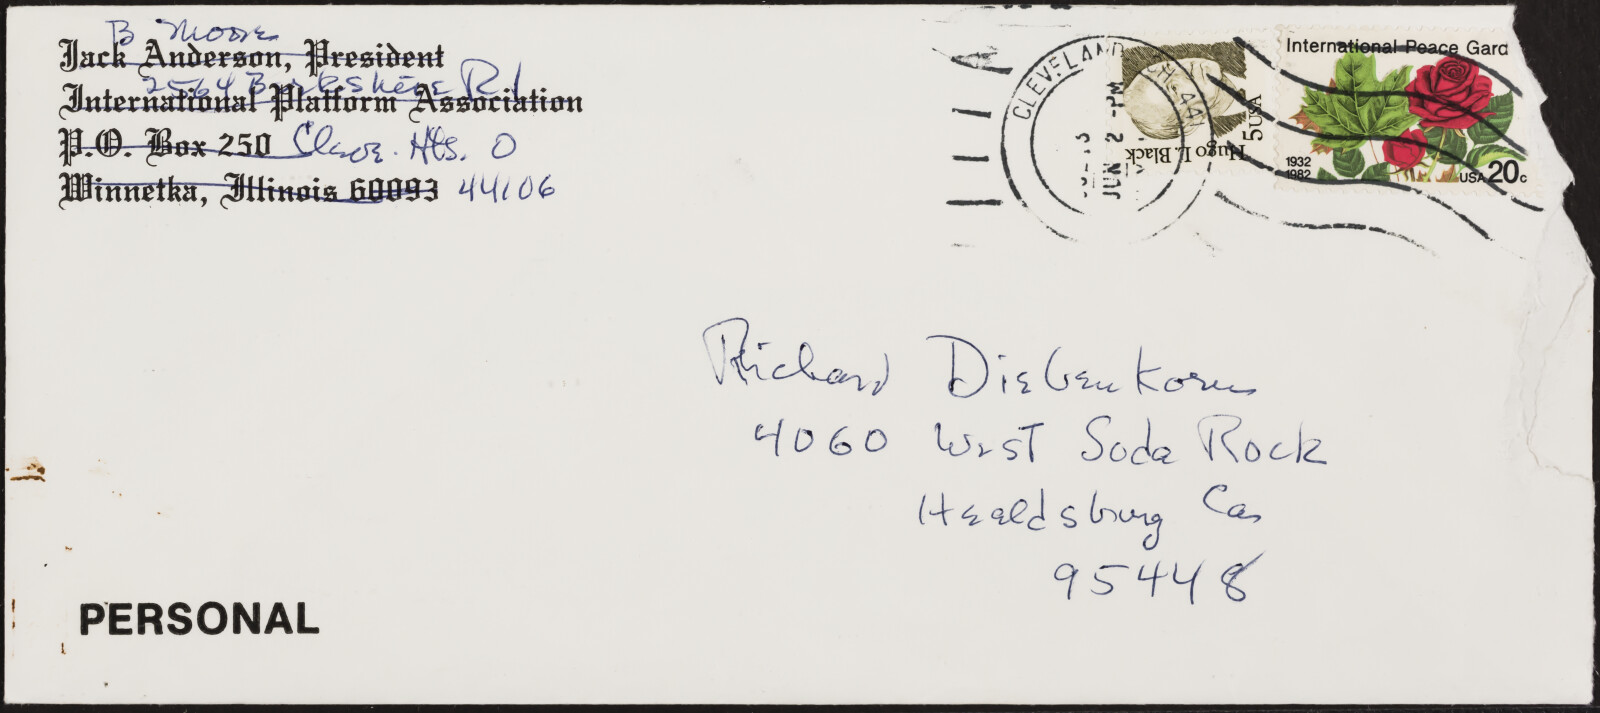 B Moore
Jack Anderson, President
2564 Berkshire Rd
International Platform Association
P.O. Box 250 Cleve. Hts. O
Winnetka, Illinois 60093 44106
CLEVELAND OH 441
JUN 2 PM
Hugo L. Black
5 USA
International Peace Gard
1932
1982
USA 20c
Richard Diebenkorn
4060 West Soda Rock
Healdsburg Ca
95448
PERSONAL